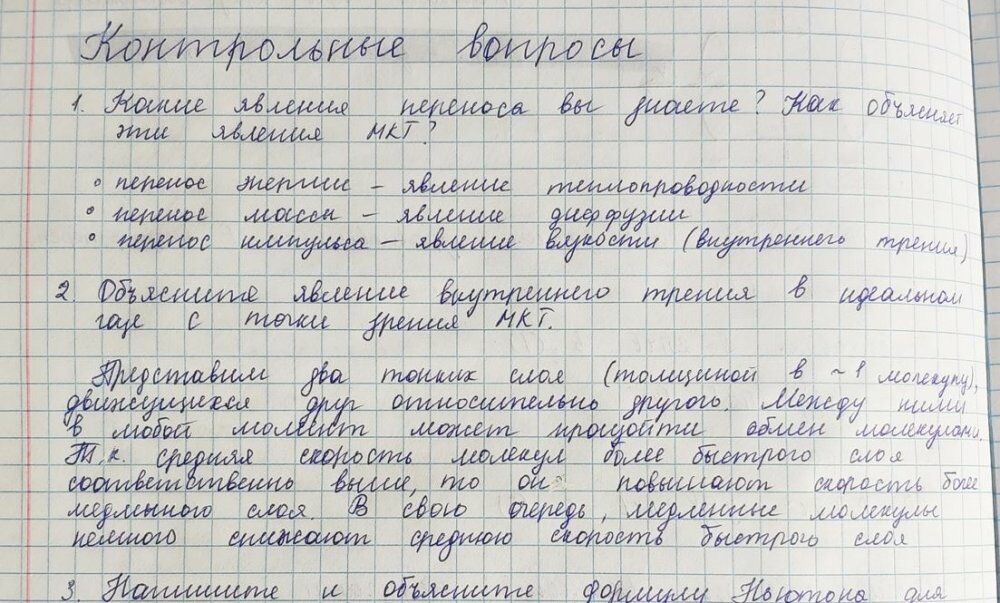 Контрольные вопросы
1. Какие явления переноса вы знаете? Как объясняет
эти явления МКТ?
• перенос энергии – явление теплопроводности
• перенос массы – явление диффузии
• перенос импульса – явление вязкости (внутреннего трения)
2. Объясните явление внутреннего трения в идеальном
газе с точки зрения МКТ.
Представим два тонких слоя (толщиной в ~ 1 молекулу),
движущихся друг относительно другого. Между ними
в любой момент может произойти обмен молекулами.
Т.к. средняя скорость молекул более быстрого слоя
соответственно выше, то они повышают скорость более
медленного слоя. В свою очередь, медленные молекулы
немного снижают среднюю скорость быстрого слоя
3. Напишите и объясните формулу Ньютона для